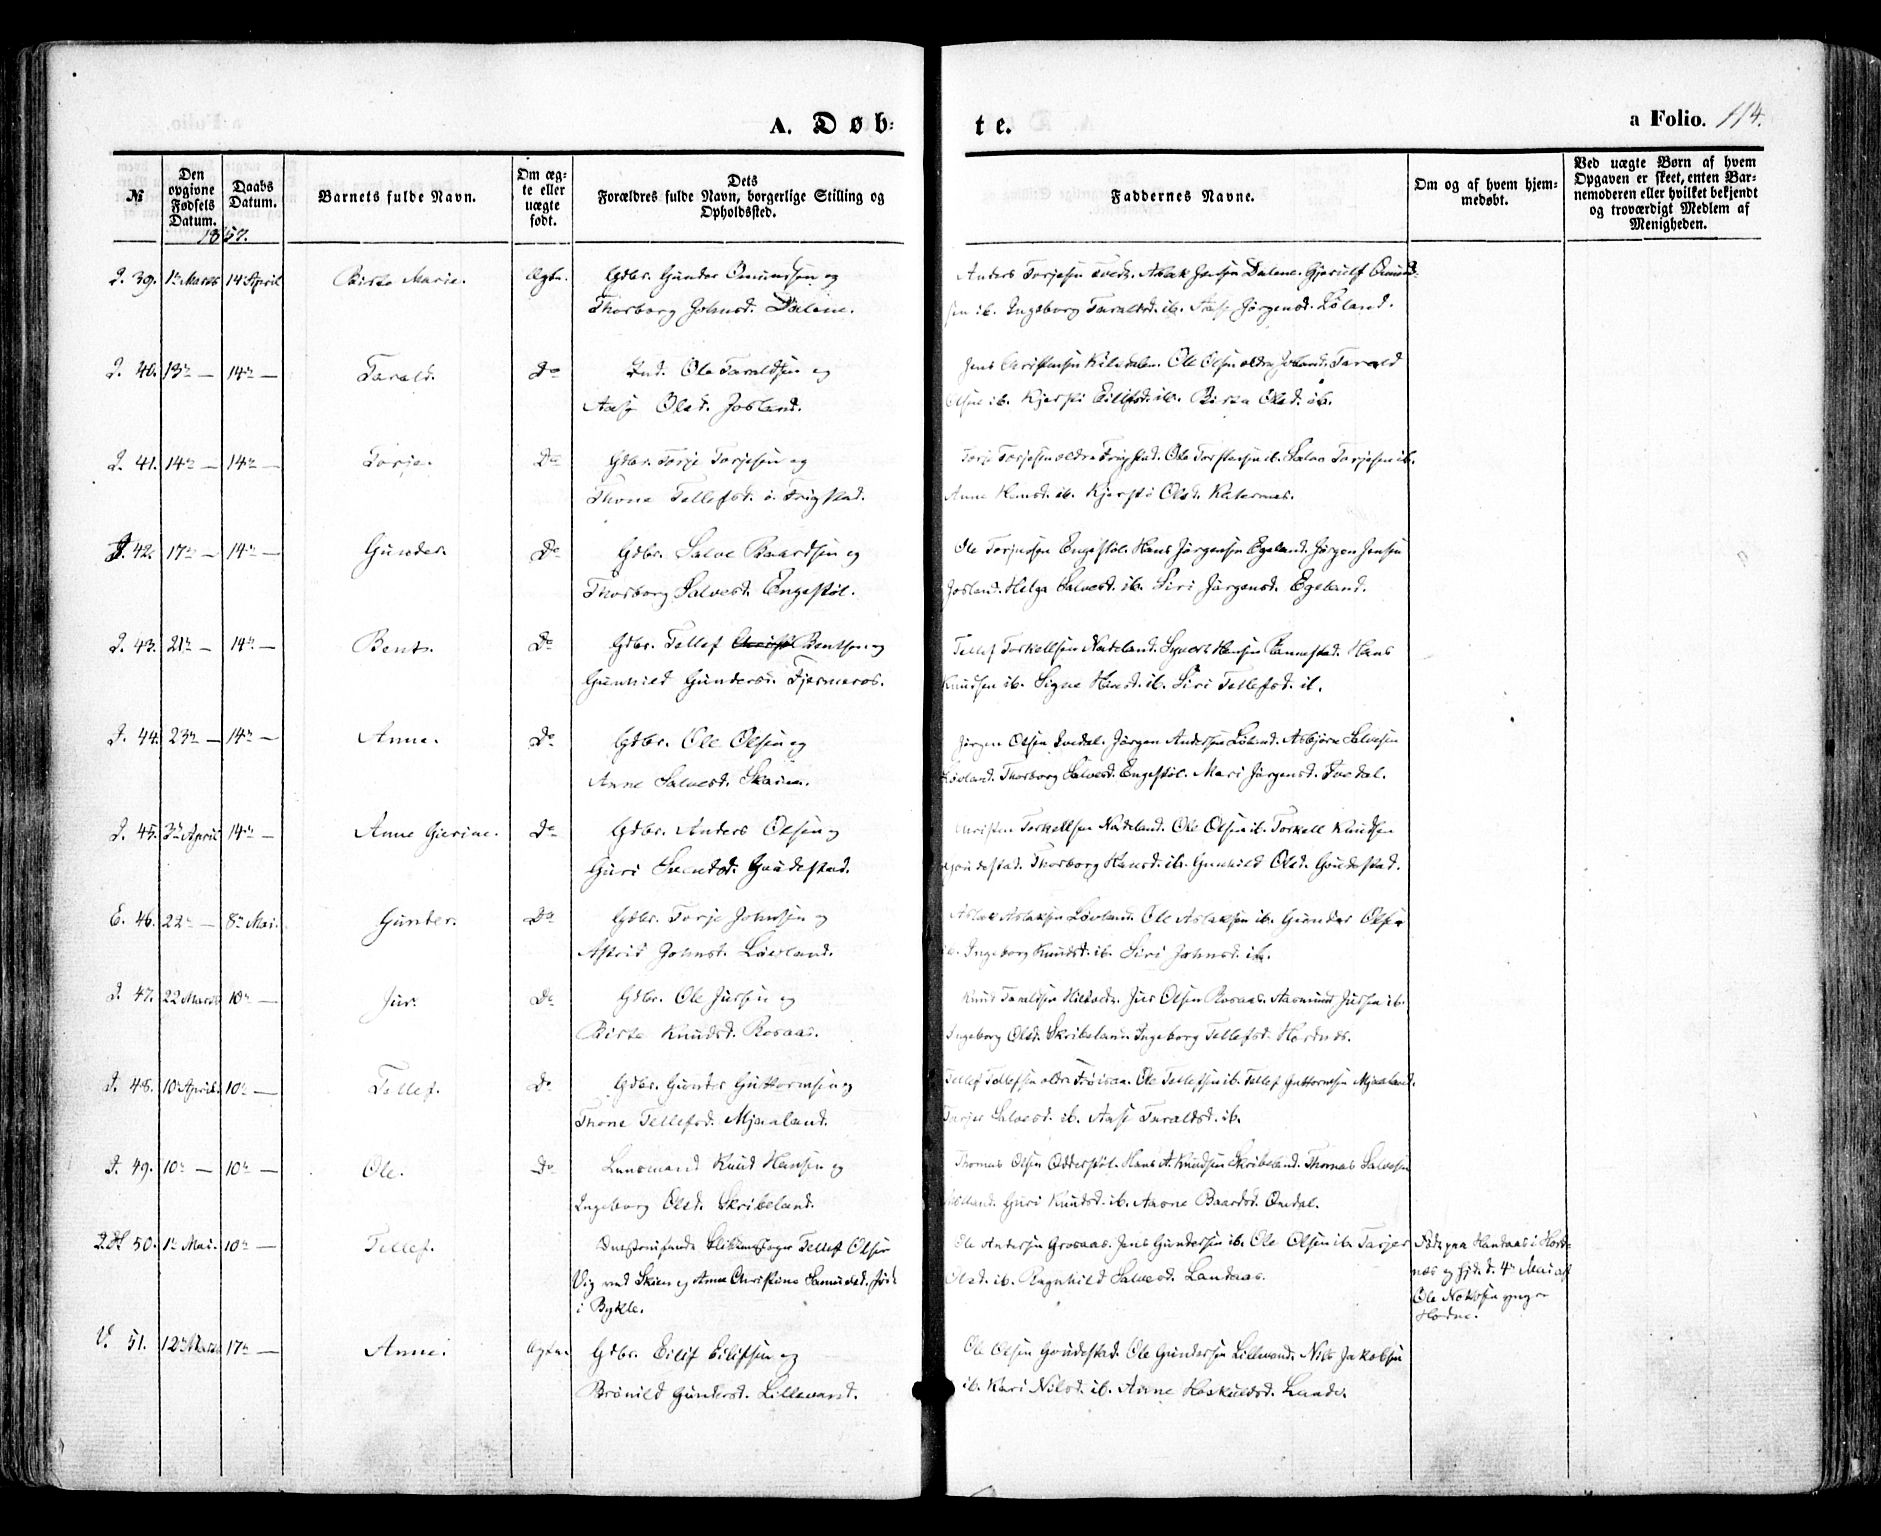 A. Døb-
te.
a Folio. 114.
№
Den opgivne Fødsels Datum.
Daabs Datum.
Barnets fulde Navn.
Om ægte eller uægte født.
Dets Forældres fulde Navn, borgerlige Stilling og Opholdssted.
Faddernes Navne.
Om og af hvem hjemmedøbt.
Ved uægte Børn af hvem Opgaven er skeet, enten Barnemoderen eller hvilket bekjendt og troværdigt Medlem af Menigheden.
1857.
39. 1ste Marts 14de April Birte Marie. Ægte. Gdbr. Gunder Omundsen og
Thorborg Johnsd. Dalene.
Anders Torjesen Tvedt. Aslak Jensen Dalene. Gjerulf Omund-
sen ib. Ingeborg Taraldsd. ib. Aase Jörgensd. Löland.
40. 13de — 14de — Tarald. Do Ind. Ole Taraldsen og
Aase Olsd. Josland.
Jens Christensen Kiledalen. Ole Olsen ældre Josland. Tarald
Olsen ib. Kjersti Eilifsd. ib. Birta Olsd. ib.
41. 14de — 14de — Torje. Do Gdbr. Torje Torjesen og
Thone Tellefsd. i Frigstad.
Torje Torjesen ældre Frigstad. Ole Torstensen ib. Salve Torjesen ib.
Anne Hansd. ib. Kjersti Olsd.
42. 17de — 14de — Gunder. Do Gdbr. Salve Baardsen og
Thorborg Salvesd. Engestöl.
Ole Torjussen Engestöl. Hans Jörgensen Egeland. Jörgen Jensen
Josland. Helga Salvesd. ib. Siri Jörgensd. Egeland.
43. 21de — 14de — Bent. Do Gdbr. Tellef Bentsen og
Gunhild Gundersd. Fjermeros.
Tellef Torkellsen Nateland. Syvert Hansen Rannestad. Hans
Knudsen ib. Signe Hansd. ib. Siri Tellefsd. ib.
44. 23de — 14de — Anne. Do Gdbr. Ole Olsen og
Anne Salvesd. Skaien.
Jörgen Olsen Tvedal. Jörgen Andersen Löland. Asbjörn Salvesen
Thorborg Salvesd. Engestöl. Mari Jörgensd. Tvedal.
45. 3de April 14de — Anne Gurine. Do Gdbr. Anders Olsen og
Guri Svendsd. Goudestad.
Christen Torkellsen Nateland. Ole Olsen ib. Torkell Knudsen
Goudestad. Thorborg Hansd. ib. Gunhild Olsd. Goudestad.
E. 46. 22de — 8de Mai. Gunter. Do Gdbr. Torje Johnsen og
Astrid Johnsd. Lövland.
Aslak Aslaksen Lövland. Ole Aslaksen ib. Gunder Olsen
ib. Ingeborg Knudsd. ib. Siri Johnsd. ib.
47. 22 Marts 10de — Jur. Do Gdbr. Ole Jursen og
Birte Knudsd. Rosaas.
Knud Taraldsen Jur Olsen Rosaas. Aasmund Jursen ib.
Ingeborg Olsd. Skribeland. Ingeborg Tellefsd. Hordnes.
48. 10de April. 10de — Tellef. Do Gdbr. Gunder Guttormsen og
Thone Tellefsd. Mjaaland.
Tellef Tellefsen ældre Fröisaa. Ole Tellefsen ib. Tellef Guttormsen Mjaaland.
Torjer Salvesd. ib. Aase Taraldsd. ib.
49. 10de — 10de — Ole. Do Lensmand Knud Hansen og
Ingeborg Olsd. Skribeland.
Thomas Olsen Odderstöl. Hans A. Knudsen Skribeland. Thomas Salvesen
Guri Knudsd. ib. Aasne Baardsd.
50. 1ste Mai. 10de — Tellef. Tellef Olsen
Vig ved Skien og Anne Christine Samuelsd. född
i Bykle.
Ole Andersen Grosaas. Jens Gundersen ib. Ole Olsen ib. Torjer
Olsd. ib. Ragnhild Salvesd. Landaas.
i Hord-
nes og hjd. d. 4de Mai af
Ole
Hodne.
V. 51. 12de Marts 17de — Anne. Ægte. Gdbr. Eilif Eilifsen og
Brönild Gundersd. Lillevand.
Ole Olsen Goudestad. Ole Gundersen Lillevand. Nils Jakobsen
ib. Kari Nilsd. ib. Anne Haskuldsd. Lande.